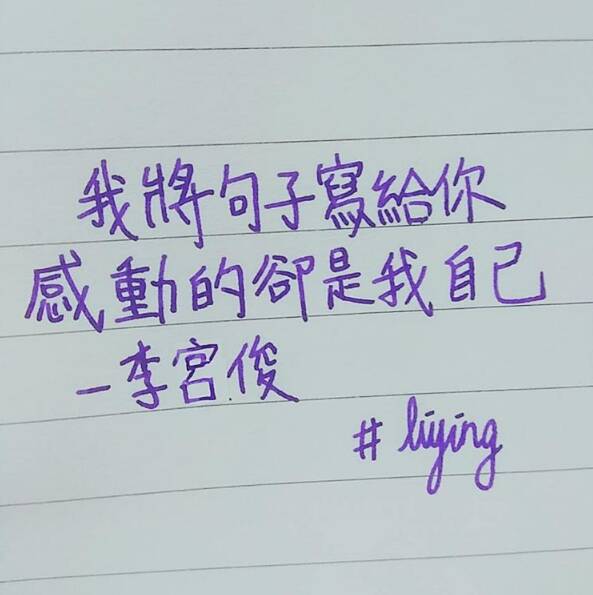 我將句子寫給你
感動的卻是我自己
－李宮俊
# liying